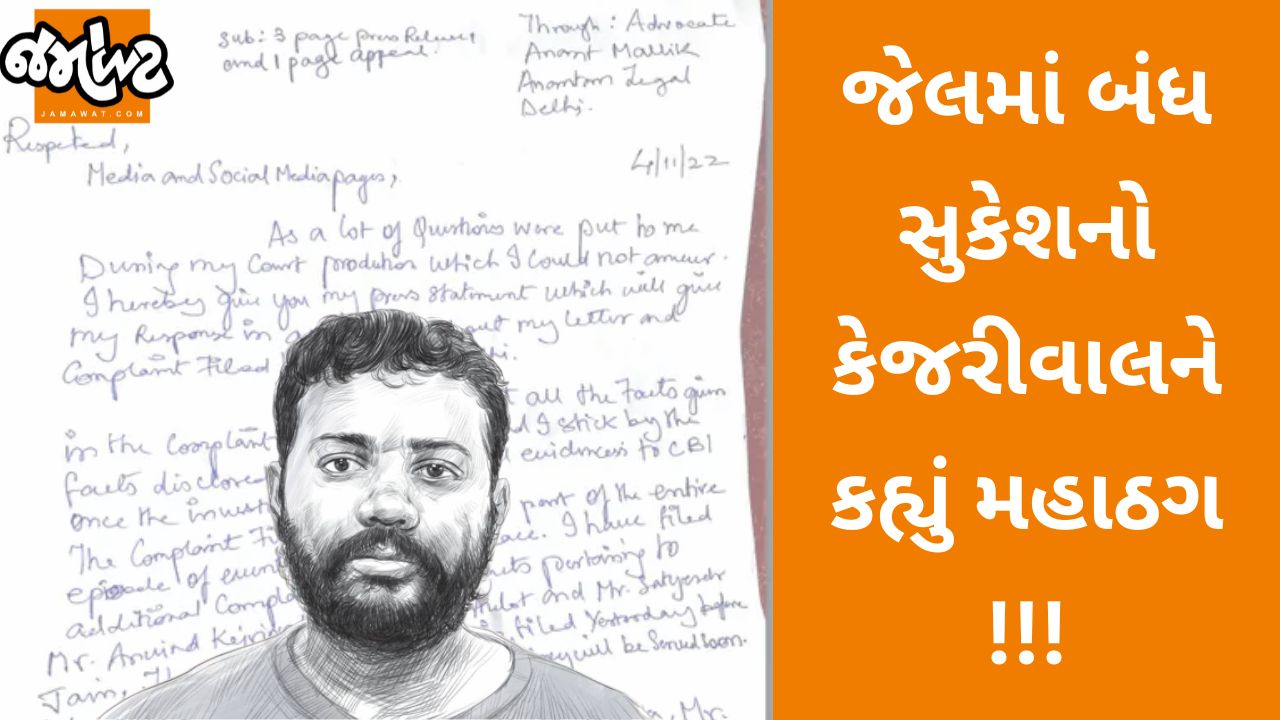 જમાવટ
JAMAWAT.COM
sub: 3 page press Release
and 1 page appeal.
Through: Advocate
Anant Mallik
Anantam Legal
Delhi.
Respeted,
4/11/22
Media and Social Media pages,
As a lot of Questions were put to me
During my Court prodution which I could not answer.
I hereby give you my press statement which will give
my Response in a out my letter and
Complaint Filed
all the Facts given
in the Complaint d I stick by the
facts disclosed evidences to CBI
once the invest part of the entire
The Complaint Fi ace. I have filed
episode of event pertaining to
additional Compla and Mr. Satyendr
Mr. Arvind Kejri filed Yesterday before
Jain, will be Served soon.
Mr.
જેલમાં બંધ
સુકેશનો
કેજરીવાલને
કહ્યું મહાઠગ
!!!